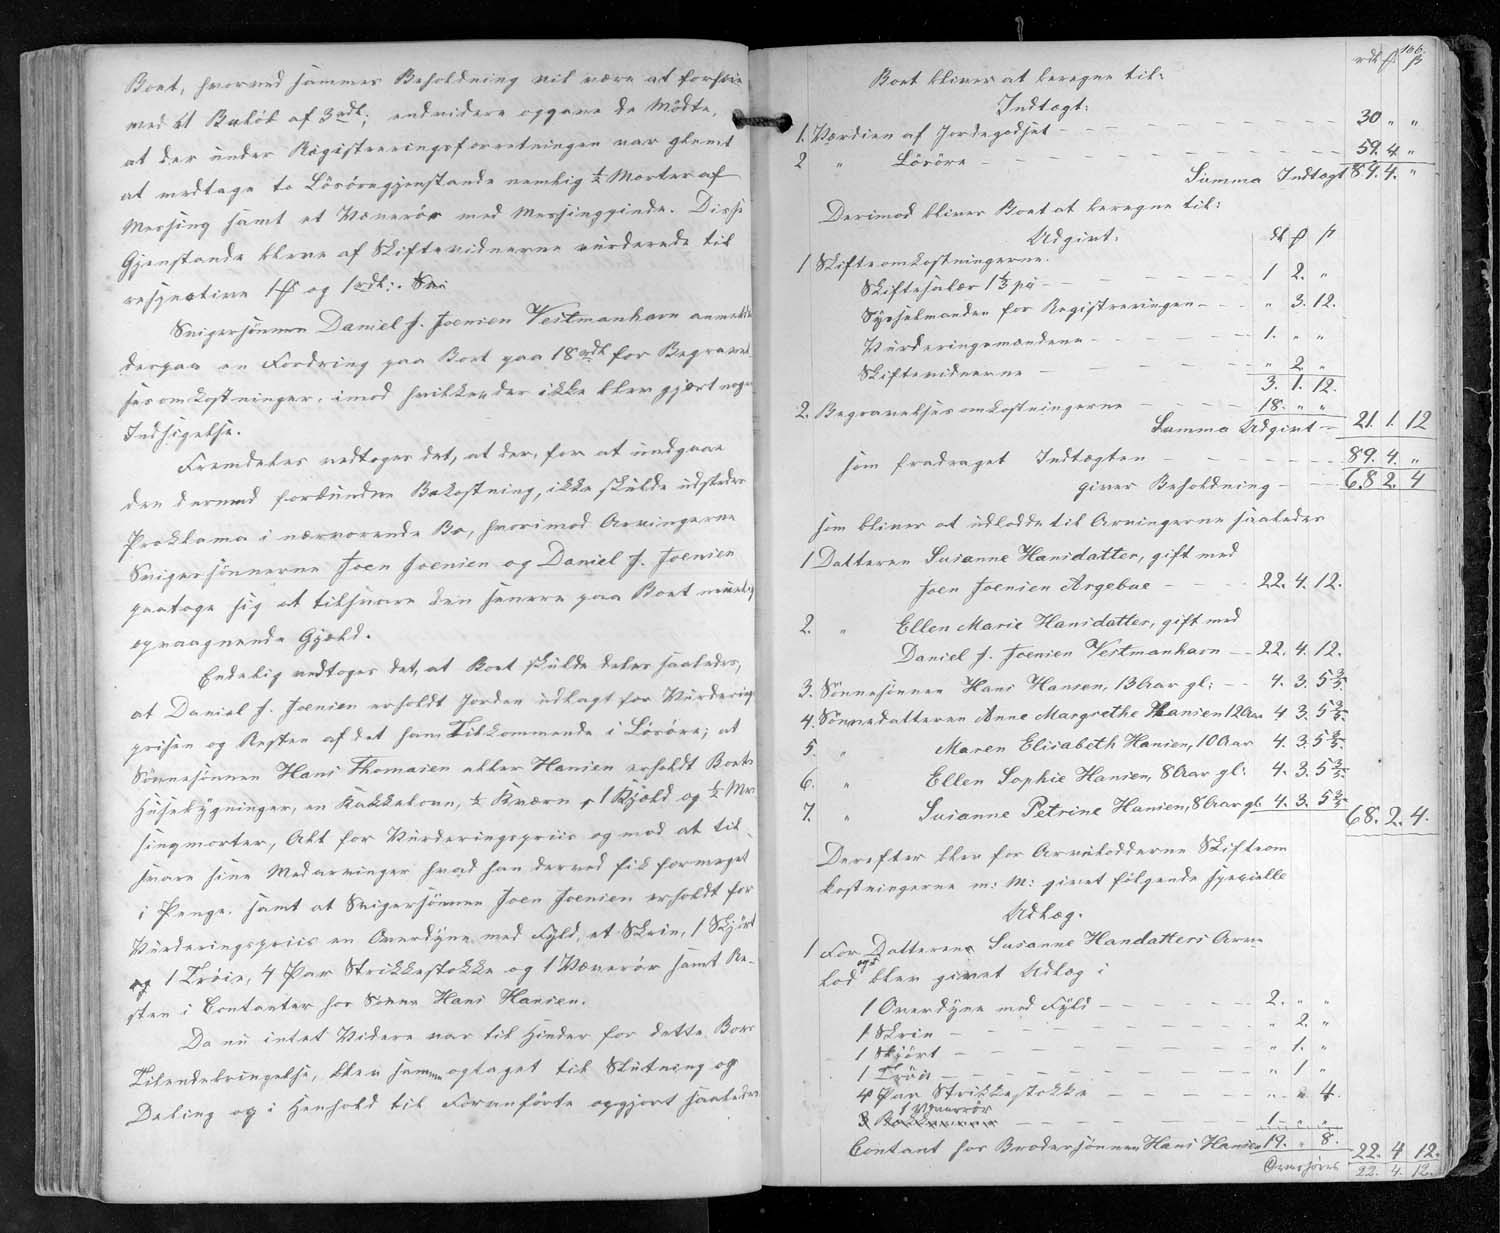 Boet, hvorved sammes Beholdning vil være at forhøie
med et Beløb af 3rdl; endvidere opgave de Mödte,
at der under Registreringsforretningen var glemt
at medtage to Lösöregjenstande nemlig ½ Morter af
Messing samt et Væverör med Messingpinde. Disse
Gjenstande bleve af Skiftevidnerne vurderede til
respective 1ß og 1rdl:.
Svigersönnen Daniel J. Joensen Vestmanhavn anmeldte
derpaa en Fordring paa Boet paa 18rdl for Begravel-
sesomkostninger, imod hvilken der ikke blev gjort nogen
Indsigelse.
Fremdeles vedtoges det, at der, for at undgaae
den dermed forbundne Bekostning, ikke skulde udstedes
Proklama i nærværende Bo, hvorimod Arvingerne
Svigersönnerne Joen Joensen og Daniel J. Joensen
paatoge sig at tilsvare den senere paa Boet muelig
opvaagnende Gjæld.
Endelig vedtoges det, at Boet skulde deles saaledes,
at Daniel J. Joensen erholdt Jorden udlagt for Vurderings
prisen og Resten af det ham Tilkommende i Lösöre; at
Sönnesönnen Hans Thomasen eller Hansen erholdt Boets
Husebygninger, en Kakkelovn, ½ Kværn, 1 Kjöld og ½ Mes
singmorter, Alt for Vurderingspriis og mod at til-
svare sine Medarvinger hvad han derved fik formeget
i Penge. samt at Svigersönnen Joen Joensen erholdt for
Vurderingspriis en Overdyne med Fyld, et Skrin, 1 Skjört
og 1 Tröie, 4 Par Strikkestokke og 1 Væverör samt Re-
sten i Contanter hos Hans Hansen.
Da nu intet Videre var til Hinder for dette Boes
Tilendebringelse, blev samme optaget til Slutning og
Deling og i Henhold til Foranförte opgjort saaledes
166.
rdl ₰ ß
Boet bliver at beregne til:
Indtægt:
1. Værdien af Jordegodset - - - 30 " "
2 " Lösöre - - - 59. 4 "
Summa Indtægt 89. 4. "
Derimod bliver Boet at beregne til:
Udgivt: dl ₰ ß
1 Skifteomkostningerne.
Skiftesalær 1⅓ pC - - - 1 2. "
Sysselmanden for Registreringen - - - " 3. 12.
Vurderingsmændene - - - 1. " "
Skiftevidnerne - - - " 2 "
3. 1. 12.
2. Begravelsesomkostningerne - - - 18. " "
Summa Udgivt - 21. 1. 12
som fradraget Indtægten - - - 89. 4. "
giver Beholdning - - 68 2. 4
som bliver at udlodde til Arvingerne saaledes
1 Datteren Susanne Hansdatter, gift med
Joen Joensen Argeboe - - - 22. 4. 12.
2. " Ellen Marie Hansdatter, gift med
Daniel J. Joensen Vestmanhavn - - 22. 4. 12.
3. Sönnesönnen Hans Hansen, 13 Aar gl: - - 4. 3. 5 3/5
4. Sönnedatteren Anne Margrethe Hansen 12 Aar 4 3. 5 3/5.
5. " Maren Elisabeth Hansen, 10 Aar 4. 3. 5 3/5.
6. " Ellen Sophie Hansen, 8 Aar gl: 4. 3. 5 3/5.
7. " Susanne Petrine Hansen, 8 Aar gl. 4. 3. 5 3/5
68. 2. 4.
Derefter blev for Arvelodderne Skifteom
kostningerne m: M: givet fölgende specielle
Udlæg.
1 For Datteren Susanne Handatters Arve
lod blev givet Udlæg i
1 Overdyne med Fyld - - - 2. " "
1 Skrin - - - " 2. "
1 Skjört - - - " 1. "
1 Tröie - - - " 1 "
4 Par Strikkestokke - - - " " 4.
1 Væverör - - - 1 - " "
Contant hos Brodersönnen Hans Hansen 19. " 8. 22. 4 12.
Overföres 22. 4. 12.